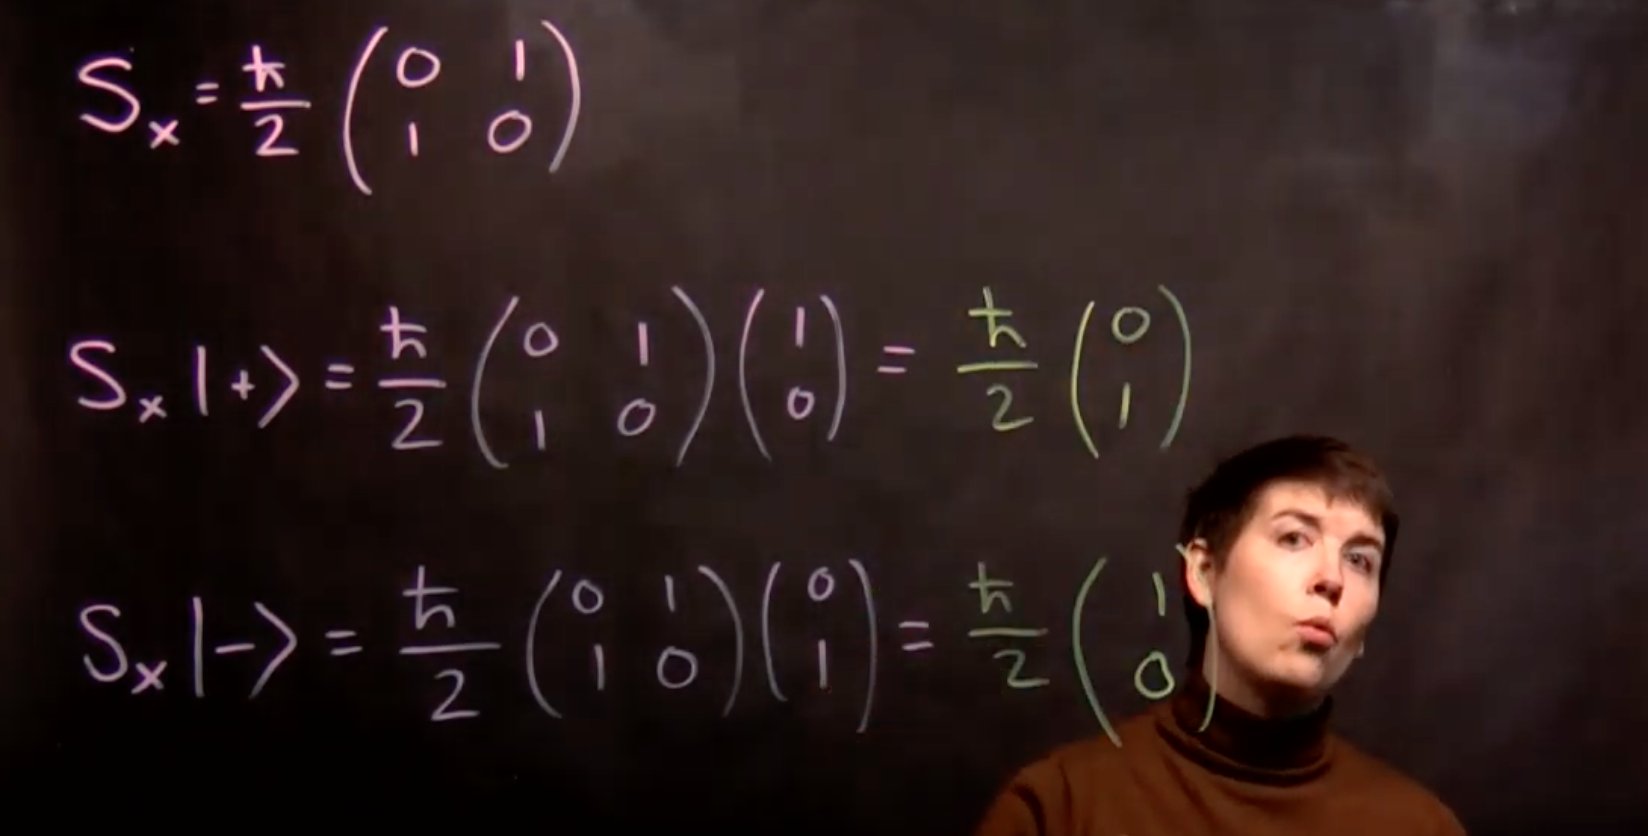 Sₓ = ħ/2 (0 1; 1 0)
Sₓ |+⟩ = ħ/2 (0 1; 1 0) (1; 0) = ħ/2 (0; 1)
Sₓ |−⟩ = ħ/2 (0 1; 1 0) (0; 1) = ħ/2 (1; 0)